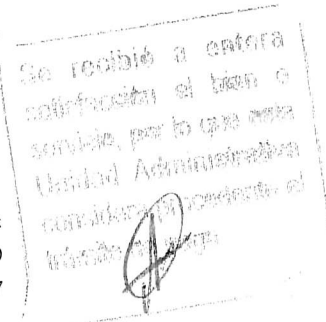 Se recibió a entera
satisfacción el bien o
servicio, por lo que esta
Unidad Administrativa
considera procedente el
trámite de pago.